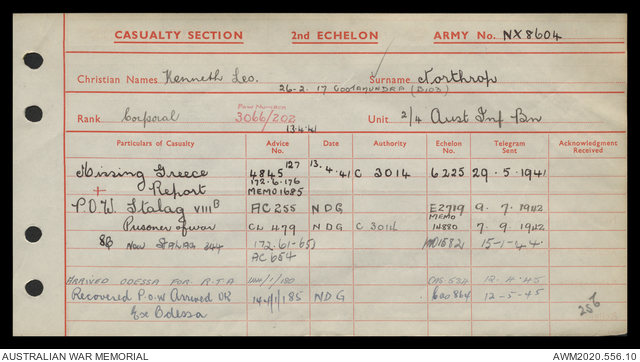 CASUALTY SECTION 2nd ECHELON ARMY No. NX8604
Christian Names Kenneth Leo. Surname Northrop
26-2-17 COOTAMUNDRA
Rank Corporal 3066/202 Unit 2/4 Aust Inf Bn
13.4.41
Particulars of Casualty Advice No. Date Authority Echelon No. Telegram Sent Acknowledgment Received
127
Missing Greece 4845 13.4.41 C 3014 6225 29.5.1941
172.6.176
+ Report MEMO1685
P.O.W. Stalag VIIIB AC 255 NDG E2719 9.7.1942
MEMO
Prisoner of war CL 479 NDG C 3014 14880 7.9.1942
Now STALAG 344 172.61-65 15-1-44
AC 654
ARRIVED ODESSA FOR 12.4.45
Recovered P.O.W Arrived UK 185 NDG 12-5-45
Ex Odessa
AUSTRALIAN WAR MEMORIAL AWM2020.556.10